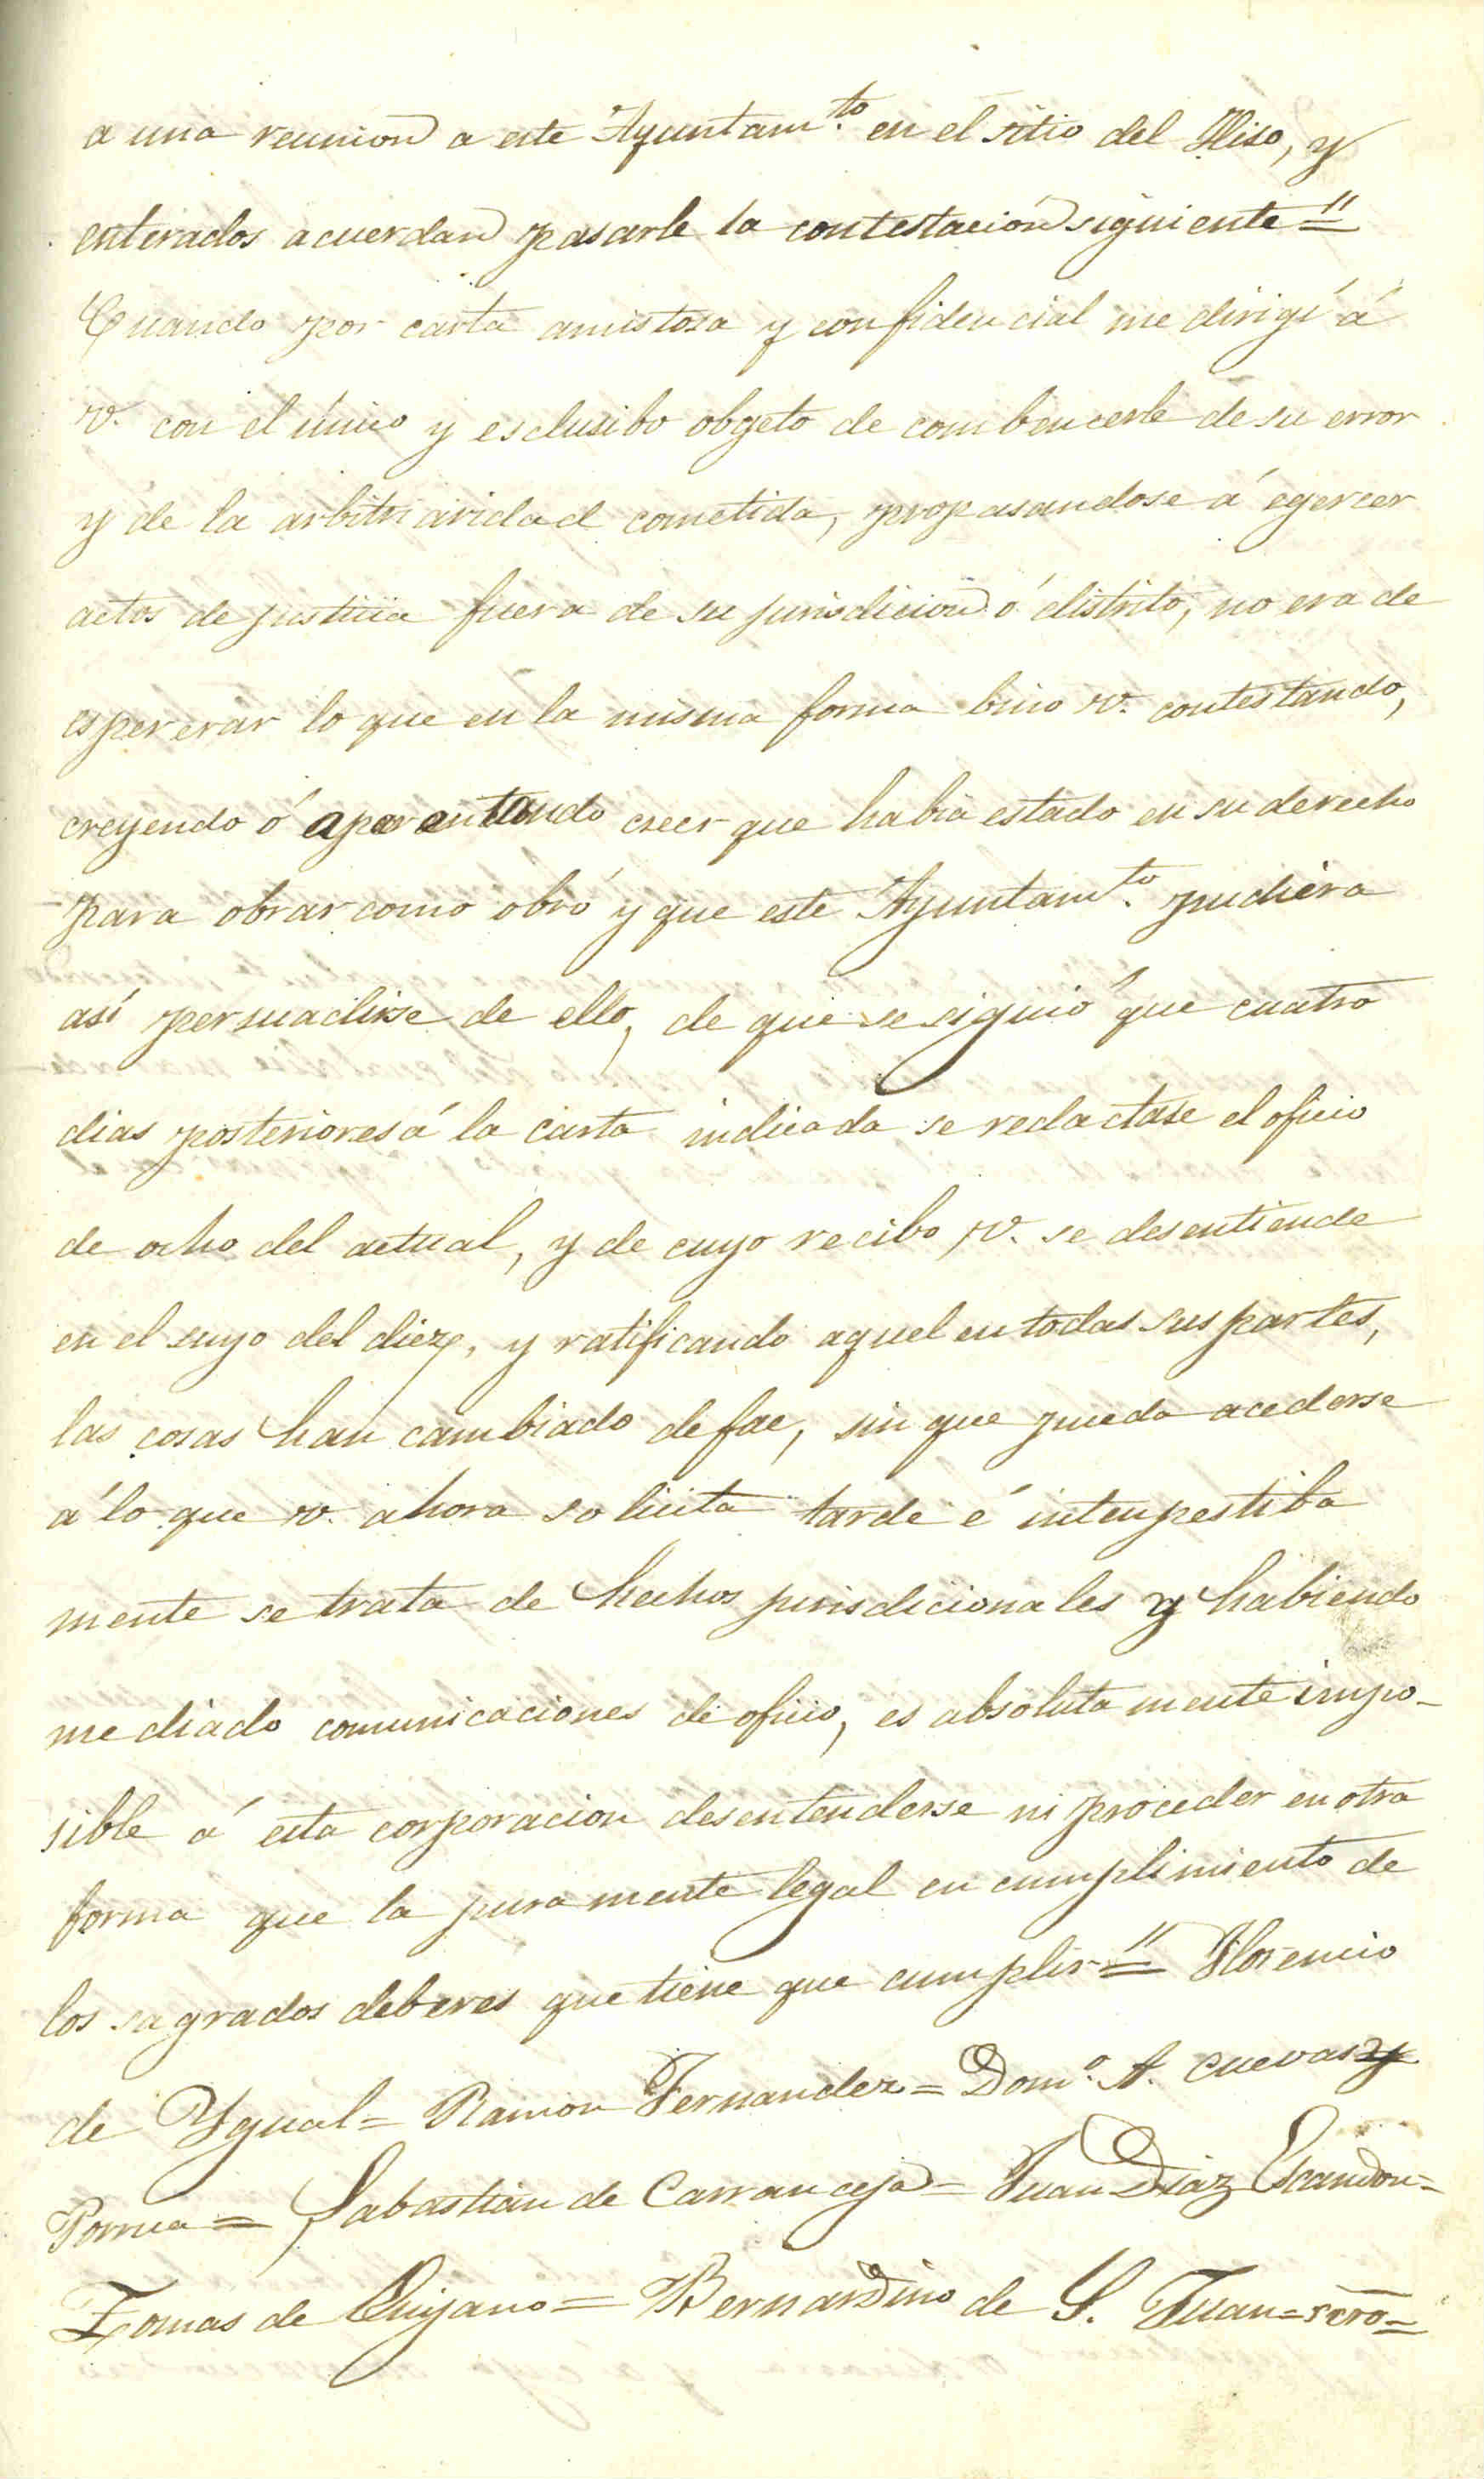 a una reunion a este Ayuntam.to en el sitio del Hiso, y
enterados acuerdan pasarle la contestación siguiente "=
Cuando por carta amistosa y confidencial me dirigí á
v. con el único y esclusibo obgeto de combencerle de su error
y de la arbitriaridad cometida, propasandose á egercer
actos de justicia fuera de su jurisdicion ó distrito, no era de
espererar lo que en la misma forma bino v. contestando,
creyendo ó aparentando creer que habia estado en su derecho
para obrar como obró y que este Ayuntam.to pudiera
así persuadirse de ello, de que se siguió que cuatro
dias posteriores á la carta indicada se redactase el oficio
de ocho del actual, y de cuyo recibo v. se desentiende
en el suyo del diez, y ratificando aquel en todas sus partes,
las cosas han cambiado de fae, sin que pueda acederse
á lo que v. ahora solicita tarde é intempestiba
mente se trata de hechos jurisdicionales y habiendo
mediado comunicaciones de oficio, es absolutamente impo-
sible á esta corporacion desentenderse ni proceder en otra
forma que la puramente legal en cumplimiento de
los sagrados deberes que tiene que cumplir "= Florencio
de Ygual = Ramon Fernandez = Dom.o A. Cuevas y
Porrua = Sabastian de Carranceja = Juan Diaz Escandon =
Tomas de Quijano = Bernardino de S. Juan = scrō =